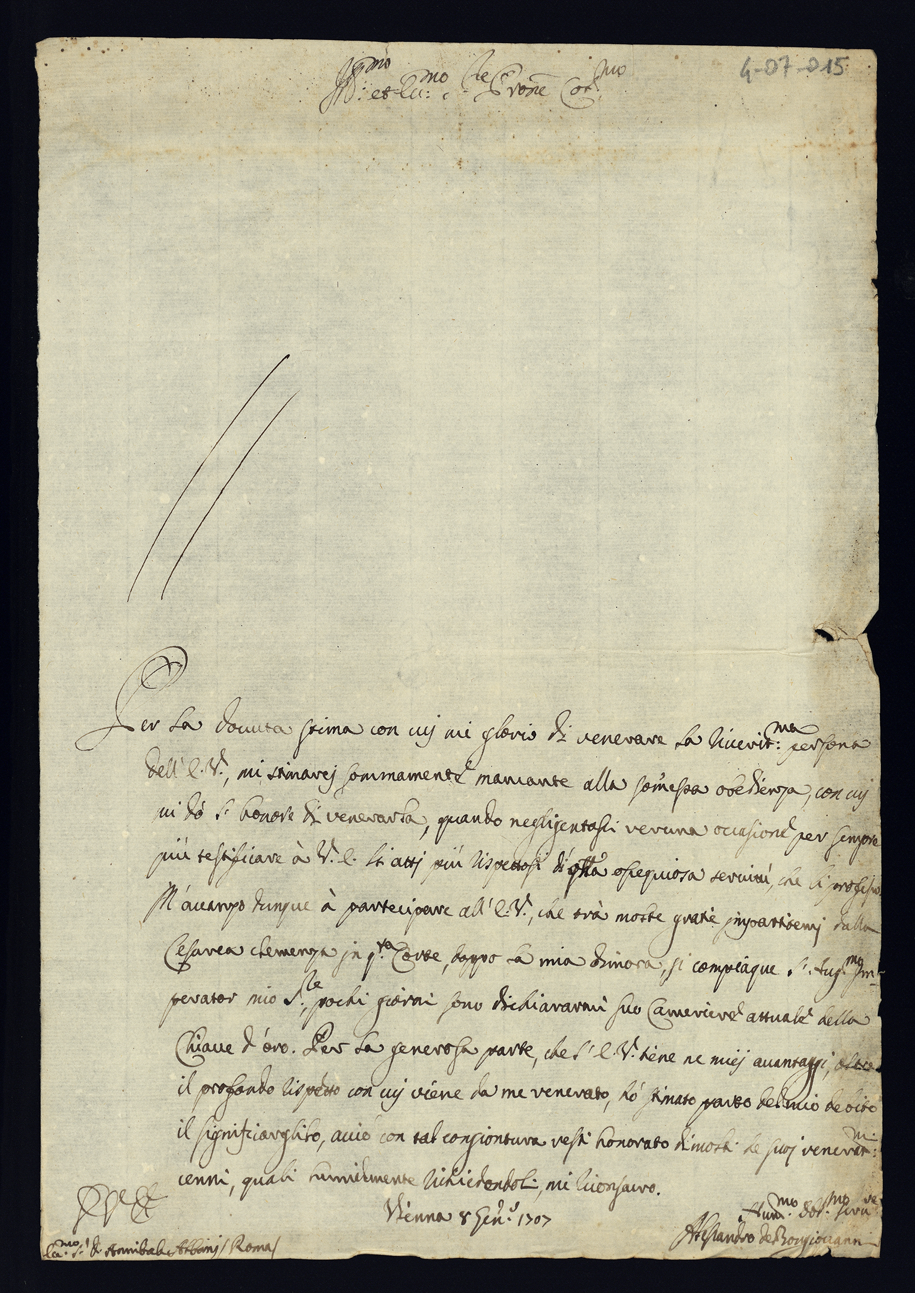 Ill:mo et Ecc:mo Sre Prone Col:mo
4-07-015
Per la douuta stima con cuj mi glorio di venerare la riuerit:ma persona
dell' E.V., mi stimarej sommamente mancante alla som̃essa obedienza, con cuj
mi dò l' honore di venerarla, quando negligentassi veruna occasione per sempre
più testificare à V.E. li attj più rispettosi di qlla ossequiosa seruitù, che li professo
M'auanzo dunque à partecipare all' E.V., che trà molte gratie jmpartitemj dalla
Cesarea clemenza jn q.ta Corte, doppo la mia dimora, si compiaque l' Aug:mo Jm-
perator mio S.re, pochi giorni sono dichiararmi suo Cameriere attuale della
Chiaue d'oro. Per la generosa parte, che l' E.V. tiene ne miej auantaggi, oltre
il profondo rispetto con cuj viene da me venerato, hò stimato parte del mio debito
il significarglilo, acciò con tal congiontura resti honorato di molti de suoj venerat:mi
cenni, quali humilmente richiedendoli, mi riconsacro.
Vienna 8 Gen.o 1707
Hum:mo deb:mo seru:re
Alessandro de Bongiouanni
Ecc:mo S.r D. Annibale Albanj / Roma /